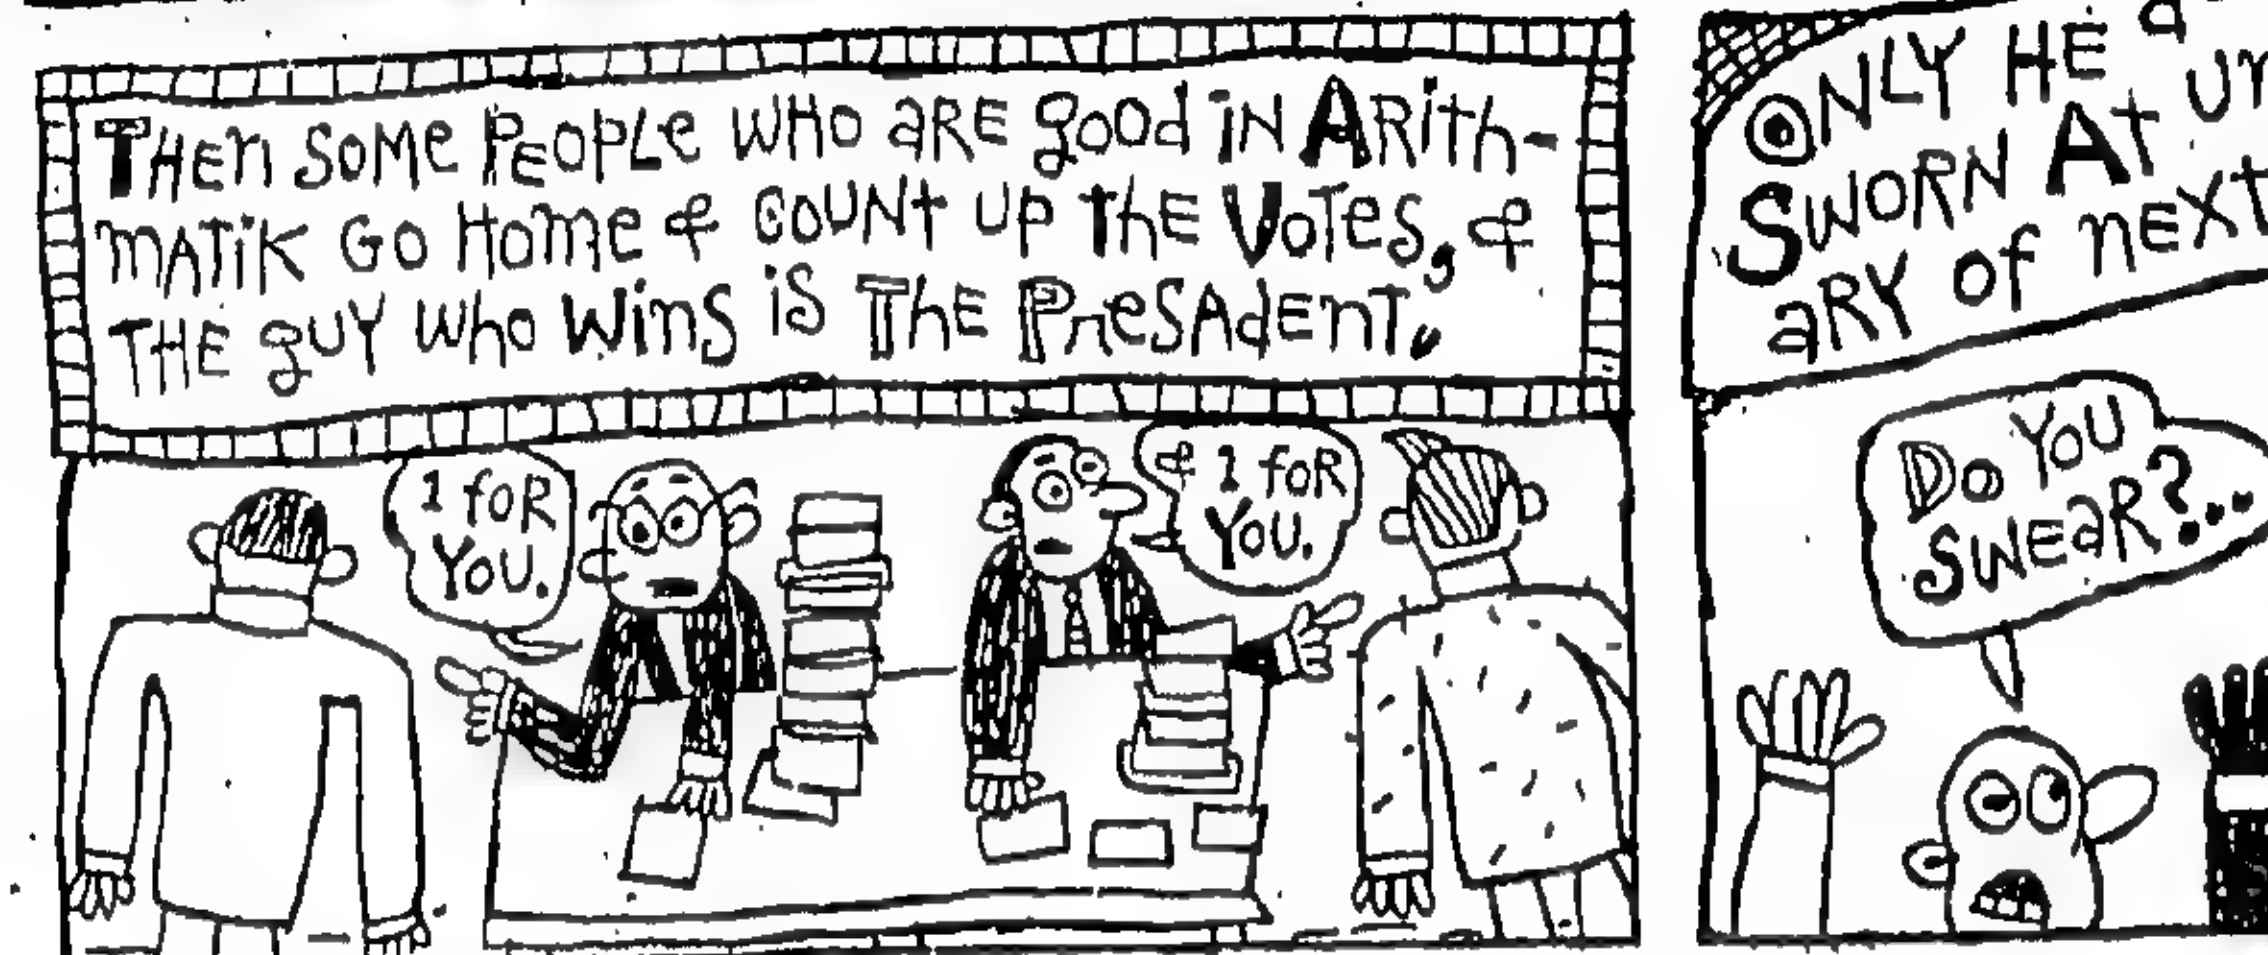 THEN SOME PEOPLE WHO ARE good iN ARith-
MATiK GO HOME & COUNT UP ThE VOTES, &
THE guY Who WinS iS ThE PReSAdENT.
1 foR
You.
& 1 foR
You.
ONLY HE
SWORN At
aRY of nEXt
Do You
SWEaR?...